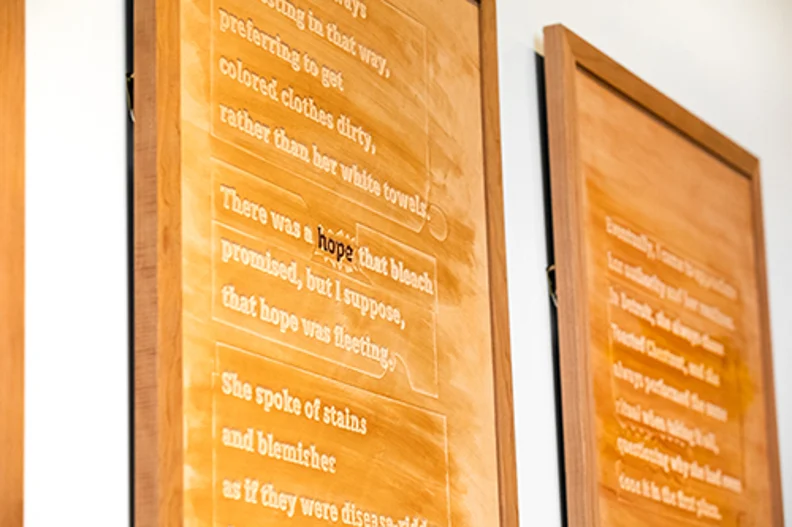 ways
in that way,
preferring to get
colored clothes dirty,
rather than her white towels.
There was a hope that bleach
promised, but I suppose,
that hope was fleeting.
She spoke of stains
and blemishes
as if they were
Eventually, I came to
her authority and her
In Detroit, she always
Toasted Chestnut, and she
always performed the same
ritual when taking it off,
questioning why she had even
done it in the first place.